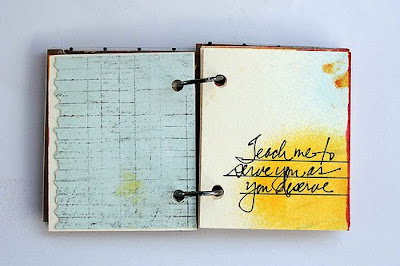 Teach me to
serve you, as
you deserve